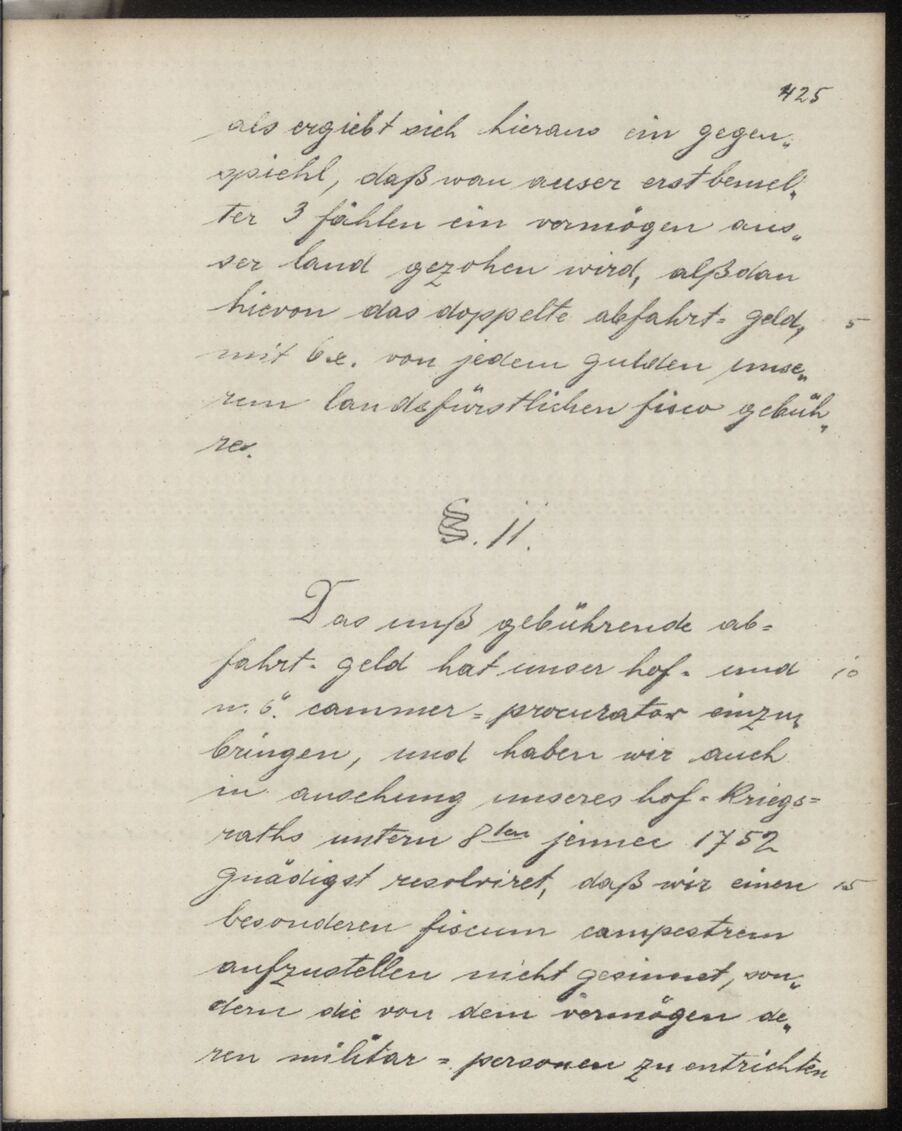 425
als ergiebt sich hieraus ein gegen„
spiehl, daß wan auser erstbemel„
ter 3 fählen ein vermögen aus„
ser land gezohen wird, alßdan
hievon das doppelte abfahrt= geld, 5
mit 6 x. von jedem gulden unse„
rem landsfürstlichen fisco gebüh„
re.
§. 11.
Das unß gebührende ab=
fahrt= geld hat unser hof= und 10
n. ö. cammer= procurator einzu„
bringen, und haben wir auch
in ansehung unseres hof= kriegs=
raths untern 8ten jenner 1752
gnädigst resolviret, daß wir einen 15
besonderen fiscum campestrem
aufzustellen nicht gesinnet, son„
dern die von dem vermögen de„
ren militar= personen zu entrichten